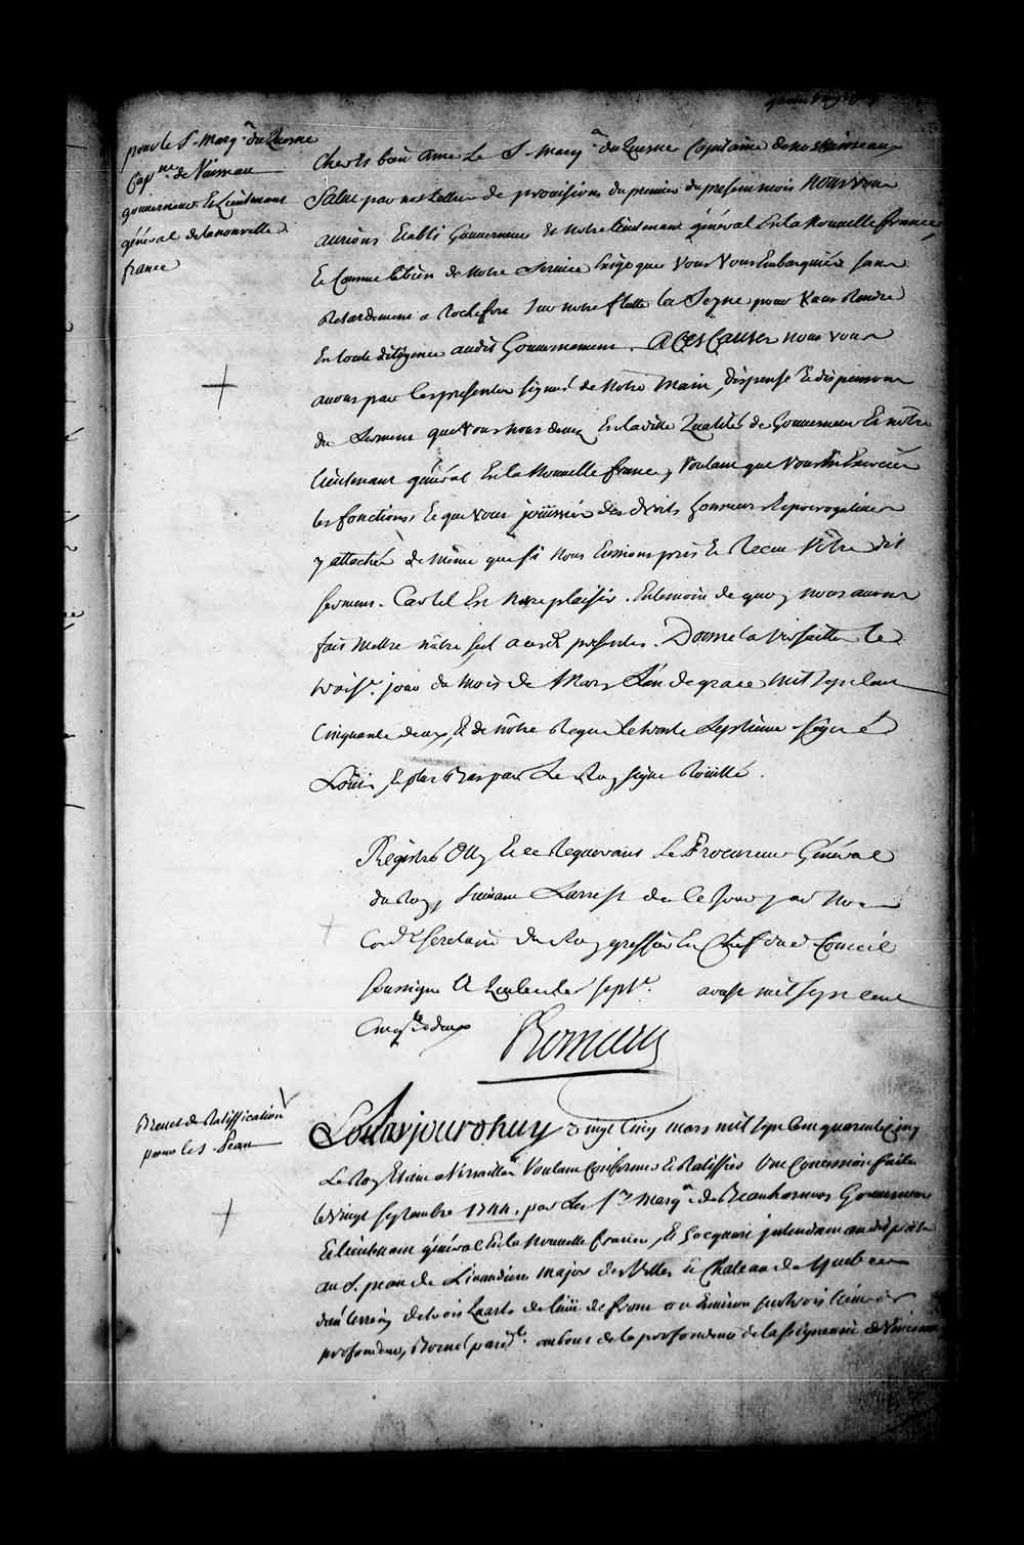 pour le S. Marq.s du Quesne
Cap.ne de Vaisseau
gouverneur Et Lieutenant
général de la nouvelle
france
Cher Et bien Amé Le S. Marq.s du Quesne Capitaine de nos Vaisseaux
Salut par nos Lettres de provisions du premier du present mois Nous vous
aurions Etabli Gouverneur et Notre Lieutenant général En la Nouvelle france,
Et Comme le bien de Notre Service Exige que Vous Vous Embarquiés sans
Retardement a Rochefort sur notre flutte la Seyne pour Vous Rendre
En toute diligence audit Gouvernement. A Ces Causes nous vous
avons par les presentes signés de Notre Main, dispensé Et dispensons
du Serment que Vous nous devez En la dite Qualité de Gouverneur Et nôtre
lieutenant général En la Nouvelle france, Voulant que Vous En Exerciés
les fonctions, Et que Vous joüissiés des droits honneurs Et prerogatives
y attachés de même que si Nous Eussions pris Et Receu Vôtre dit
serment. Car tel Est Notre plaisir. En temoin de quoy nous avons
fait Mettre nôtre scel a ces presentes. Donné a Versailles le
trois.e jour du Mois de Mars L'an de grace Mil Sept Cent
Cinquante deux, Et de nôtre Regne le trente Septieme. signé
Loüis, Et plus Bas par Le Roy signé Roüillé.
Registré Oüy Et ce Requerant Le Procureur Général
du Roy, Suivant L'arrest de ce Jour par Nous
Con.er Secretaire du Roy greffier En Chef dud Conseil
soussigné A Quebec le sept.e aoust mil sept cent
Cinq.te deux
Brevet de Ratiffication
pour le S. Pean
Aujourdhuy Vingt Cinq mars mil sept Cent quarante cinq
Le Roy Etant a Versailles Voulant Confirmer Et Ratiffier Une Concession faite
le Vingt Septembre 1744, par Les S.rs Marq.s de Beauharnois Gouverneur
Et lieutenant général En la Nouvelle france, Et hocquart jntendant audit païs
au S. pean de Livaudiere major des Villes Et Chateau de Quebec
d'un terrein de trois quarts de lieüe de front ou Environ sur trois lieües de
profondeur, Borné par au bout de la profondeur de la seigneurie de